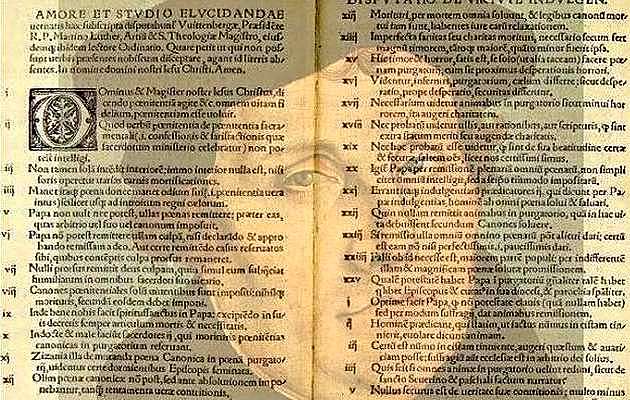 AMORE ET STVDIO ELVCIDANDAE
ueritatis hæc subscripta disputabunť Vuittenbergæ, Præsidēte
R. P. Martino Luther, Artiū & S. Theologiæ Magistro, eius-
dem ibidem lectore Ordinario. Quare petit ut qui non pos-
sunt uerbis præsentes nobiscum disceptare, agant id literis ab-
sentes. In nomine domini nostri Iesu Christi, Amen.
i Ominus & Magister noster Iesus Christus, di
cendo pœnitentiā agite &c. omnem uitam fi
delium, pœnitentiam esse uoluit.
ij Quod uerbū de pœnitentia sacra-
mentali (i. confessionis & satisfactionis quæ
sacerdotum ministerio celebratur) non po-
test intelligi.
iij Non tamen solā intēdit interiorē; immo interior nulla est, nisi
foris operetur uarias carnis mortificationes.
iiij Manet itaqꝫ pœna donec manet odium sui (.i. pœnitentia uera
intus) scilicet usqꝫ ad introitum regni cælorum.
v Papa non uult nec potest, ullas pœnas remittere; præter eas,
quas arbitrio uel suo uel canonum imposuit.
vj Papa nō potest remittere ullam culpā, nisi declarādo & appro
bando remissam a deo. Aut certe remittēdo casus reseruatos
sibi, quibus contēptis culpa prorsus remaneret.
vij Nulli prorsus remittit deus culpam, quin simul eum subijciat
humiliatum in omnibus sacerdoti suo uicario.
viij Canones pœnitentiales solū uiuentibus sunt impositi; nihilqꝫ
morituris, secundū eosdem debet imponi.
ix Inde bene nobis facit spiritussanctus in Papa; excipiēdo in su-
is decretis semper articulum mortis & necessitatis.
x Indocte & male faciūt sacerdotes ij, qui morituris pœnitētias
canonicas in purgatorium reseruant.
xj Zizania illa de mutanda pœna Canonica in pœnā purgato-
rij, uidentur certe dormientibus Episcopis seminata.
xij Olim pœnæ canonicæ nō post, sed ante absolutionem im po-
nebantur, tanqꝫ tentamenta ueræ contritionis.
DISPVTATIO DE VIRTVTE INDVLGEN.
xiij Morituri, per mortem omnia soluunt, & legibus canonū mor-
tui iam sunt, habentes iure earū relaxationem.
xiiij Imperfecta sanitas seu charitas morituri, necessario secum fert
magnū timorem, tātoqꝫ maiorē, quāto minor fuerit ipsa.
xv Hic timor & horror, satis est, se solo (ut alia taceam) facere pœ-
nam purgatorij, cum sit proximus desperationis horrori.
xvj Videntur, infernus, purgatorium, cælum differre; sicut despe-
ratio, prope desperatio, securitas differunt.
xvij Necessarium uidetur animabus in purgatorio sicut minui hor-
rorem, ita augeri charitatem.
xviij Nec probatū uidetur ullis, aut rationibus, aut scripturis, ꝙ sint
extra statum meriti seu augendæ charitatis.
xix Nec hoc probatū esse uidetur, ꝙ sint de sua beatitudine certæ
& securæ, saltem oēs, licet nos certissimi simus.
xx Igiť Papa per remissionē plenariā omniū pœnarū, non simpli
citer omniū intelligit, sed a seipso tātūmodo impositarū.
xxj Errant itaqꝫ indulgentiarū prædicatores ij, qui dicunt per Pa-
pæ indulgentias, hominē ab omni pœna solui & saluari.
xxij Quin nullam remittit animabus in purgatorio, quā in hac ui-
ta debuissent secundum Canones soluere.
xxiij Si remissio ulla omniū omnino pœnarū põt alicui dari; certū
est eam nō nisi perfectissimis, i. paucissimis dari.
xxiiij Falli ob id necesse est, maiorē partē populi; per indifferentē
illam & magnificam pœnæ solutæ promissionem.
xxv Qualē potestatē habet Papa ī purgatoriū gñaliter; talē habet
quilibet Episcopus & curatus in sua diocesi, & parochia spāliter.
i Optime facit Papa, ꝙ nō potestate clauis (quā nullam habet)
sed per modum suffragij, dat animabus remissionem.
ij Hominē prædicant, qui statim, ut iactus nūmus in cistam tin-
nierit, euolare dicunt animam.
iij Certū est nūmo in cistam tinniente, augeri quæstum & auari-
ciam posse; suffragiū aūt ecclesiæ est in arbitrio dei solius.
iiij Quis scit si omnes animæ in purgatorio uelint redimi, sicut de
sancto Seuerino & paschali factum narratur.
v Nullus securus est de ueritate suæ contritionis, multominus